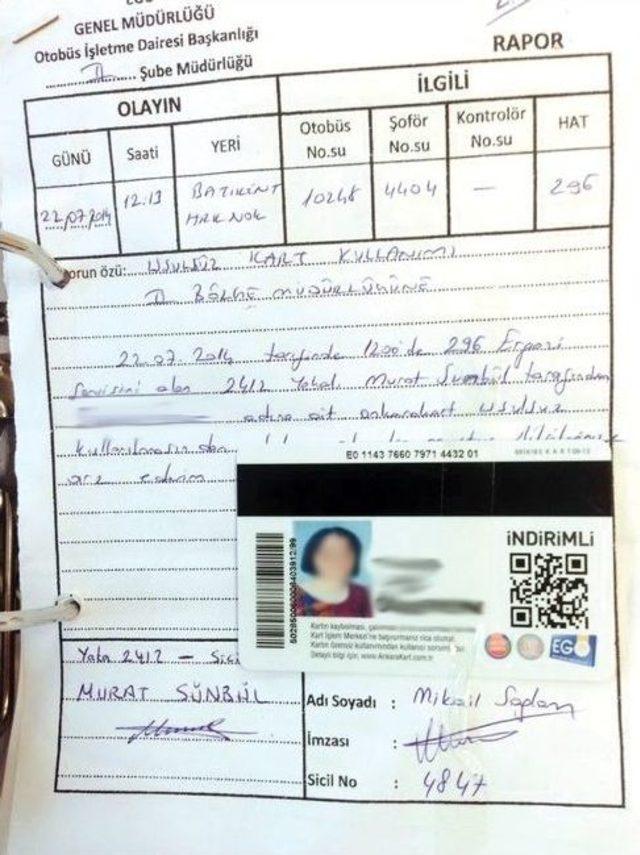 GENEL MÜDÜRLÜĞÜ
Otobüs İşletme Dairesi Başkanlığı
II Şube Müdürlüğü
RAPOR
OLAYIN
İLGİLİ
GÜNÜ
Saati
YERİ
Otobüs No.su
Şoför No.su
Kontrolör No.su
HAT
22.07.2014
12.13
BATIKENT
HRK NOK
10248
4404
—
296
orun özü: USULSÜZ KART KULLANIMI
II BÖLGE MÜDÜRLÜĞÜNE
22.07.2014 tarihinde 1200'de 296 Ergazi
Servisini alan 2412 Yakalı Murat Sünbül tarafından
adına ait ankarakart usulsuz
kullanılmasından
arz ederim
E0 1143 7660 7971 4432 01
İNDİRİMLİ
Kartın kaybolması,
Kart İşlem Merkezi'ne başvurmanız rica olunur.
Kartın özensiz kullanımından kullanıcı
Detaylı bilgi için: www.AnkaraKart.com.tr
EGO
Yaka 2412 – Sici
MURAT SÜNBÜL
Adı Soyadı : Mikail
İmzası :
Sicil No : 4847